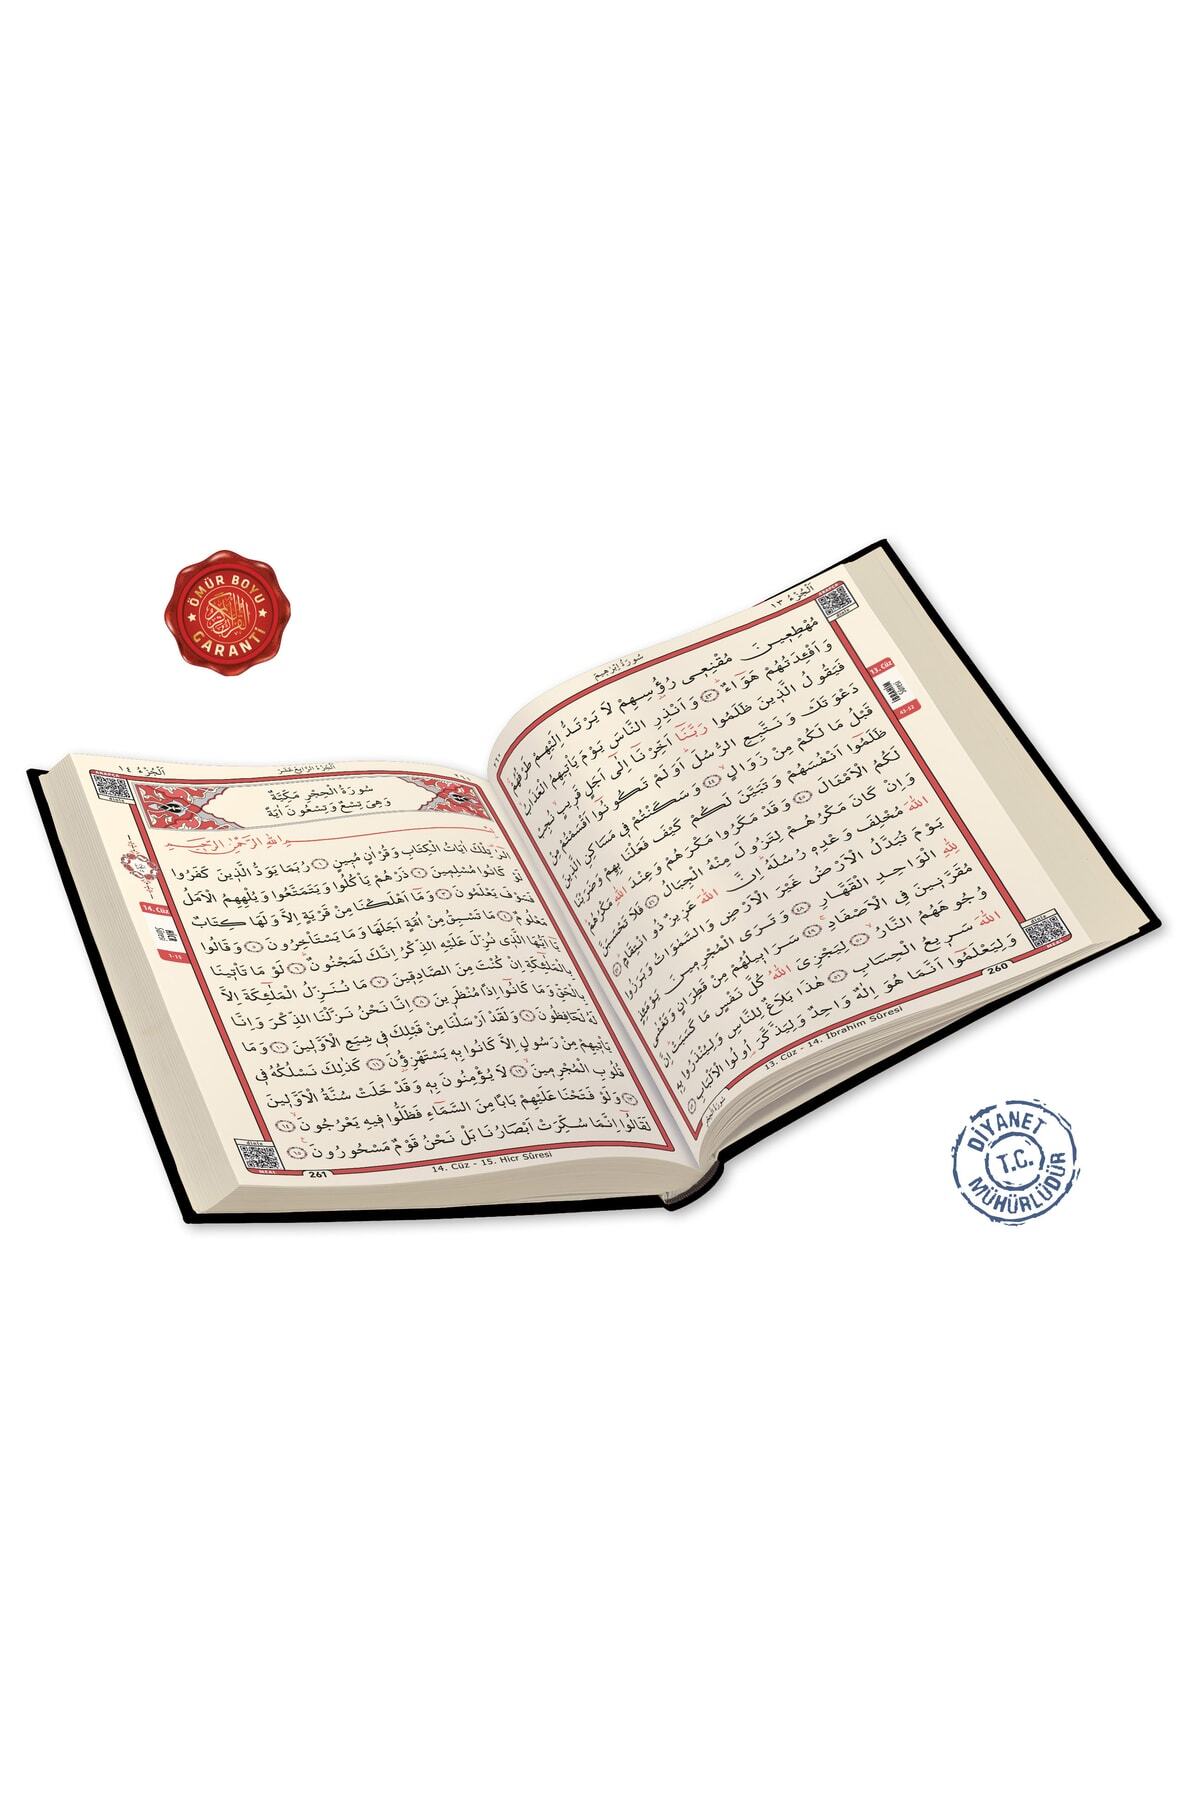 ÖMÜR BOYU
GARANTİ
اَلْجُزْءُ ١٣
سُورَةُ اِبْرٰهِيمَ
مُهْطِعِينَ مُقْنِعِى رُؤُسِهِمْ لَا يَرْتَدُّ اِلَيْهِمْ طَرْفُهُمْ
وَاَفْـِٔدَتُهُمْ هَوَٓاءٌ ٤٣ وَاَنْذِرِ النَّاسَ يَوْمَ يَأْتِيهِمُ الْعَذَابُ
فَيَقُولُ الَّذِينَ ظَلَمُوا رَبَّنَٓا اَخِّرْنَٓا اِلٰٓى اَجَلٍ قَرِيبٍ نُجِبْ
دَعْوَتَكَ وَنَتَّبِعِ الرُّسُلَ اَوَلَمْ تَكُونُٓوا اَقْسَمْتُمْ مِنْ
قَبْلُ مَا لَكُمْ مِنْ زَوَالٍ ٤٤ وَسَكَنْتُمْ فِى مَسَاكِنِ الَّذِينَ
ظَلَمُٓوا اَنْفُسَهُمْ وَتَبَيَّنَ لَكُمْ كَيْفَ فَعَلْنَا بِهِمْ وَضَرَبْنَا
لَكُمُ الْاَمْثَالَ ٤٥ وَقَدْ مَكَرُوا مَكْرَهُمْ وَعِنْدَ اللّٰهِ مَكْرُهُمْ
وَاِنْ كَانَ مَكْرُهُمْ لِتَزُولَ مِنْهُ الْجِبَالُ ٤٦ فَلَا تَحْسَبَنَّ
اللّٰهَ مُخْلِفَ وَعْدِهِ رُسُلَهُ اِنَّ اللّٰهَ عَزِيزٌ ذُو انْتِقَامٍ ٤٧
يَوْمَ تُبَدَّلُ الْاَرْضُ غَيْرَ الْاَرْضِ وَالسَّمٰوَاتُ وَبَرَزُوا
لِلّٰهِ الْوَاحِدِ الْقَهَّارِ ٤٨ وَتَرَى الْمُجْرِمِينَ يَوْمَئِذٍ
مُقَرَّنِينَ فِى الْاَصْفَادِ ٤٩ سَرَابِيلُهُمْ مِنْ قَطِرَانٍ وَتَغْشٰى
وُجُوهَهُمُ النَّارُ ٥٠ لِيَجْزِىَ اللّٰهُ كُلَّ نَفْسٍ مَا كَسَبَتْ اِنَّ
اللّٰهَ سَرِيعُ الْحِسَابِ ٥١ هٰذَا بَلَاغٌ لِلنَّاسِ وَلِيُنْذَرُوا بِهِ
وَلِيَعْلَمُٓوا اَنَّمَا هُوَ اِلٰهٌ وَاحِدٌ وَلِيَذَّكَّرَ اُولُوا الْاَلْبَابِ ٥٢
13. Cüz
İBRAHİM
Sûresi
43-52
260
13. Cüz - 14. İbrahim Sûresi
اَلْجُزْءُ ١٤
اَلْجُزْءُ الرَّابِعُ عَشَرَ
سُورَةُ الْحِجْرِ مَكِّيَّةٌ
وَهِىَ تِسْعٌ وَتِسْعُونَ اٰيَةً
بِسْمِ اللّٰهِ الرَّحْمٰنِ الرَّحِيمِ
الٓرٰ تِلْكَ اٰيَاتُ الْكِتَابِ وَقُرْاٰنٍ مُبِينٍ ١ رُبَمَا يَوَدُّ الَّذِينَ كَفَرُوا
لَوْ كَانُوا مُسْلِمِينَ ٢ ذَرْهُمْ يَأْكُلُوا وَيَتَمَتَّعُوا وَيُلْهِهِمُ الْاَمَلُ
فَسَوْفَ يَعْلَمُونَ ٣ وَمَٓا اَهْلَكْنَا مِنْ قَرْيَةٍ اِلَّا وَلَهَا كِتَابٌ
مَعْلُومٌ ٤ مَا تَسْبِقُ مِنْ اُمَّةٍ اَجَلَهَا وَمَا يَسْتَأْخِرُونَ ٥ وَقَالُوا
يَٓا اَيُّهَا الَّذِى نُزِّلَ عَلَيْهِ الذِّكْرُ اِنَّكَ لَمَجْنُونٌ ٦ لَوْ مَا تَأْتِينَا
بِالْمَلٰٓئِكَةِ اِنْ كُنْتَ مِنَ الصَّادِقِينَ ٧ مَا نُنَزِّلُ الْمَلٰٓئِكَةَ اِلَّا
بِالْحَقِّ وَمَا كَانُٓوا اِذًا مُنْظَرِينَ ٨ اِنَّا نَحْنُ نَزَّلْنَا الذِّكْرَ وَاِنَّا
لَهُ لَحَافِظُونَ ٩ وَلَقَدْ اَرْسَلْنَا مِنْ قَبْلِكَ فِى شِيَعِ الْاَوَّلِينَ ١٠ وَمَا
يَأْتِيهِمْ مِنْ رَسُولٍ اِلَّا كَانُوا بِهِ يَسْتَهْزِؤُنَ ١١ كَذٰلِكَ نَسْلُكُهُ فِى
قُلُوبِ الْمُجْرِمِينَ ١٢ لَا يُؤْمِنُونَ بِهِ وَقَدْ خَلَتْ سُنَّةُ الْاَوَّلِينَ
١٣ وَلَوْ فَتَحْنَا عَلَيْهِمْ بَابًا مِنَ السَّمَٓاءِ فَظَلُّوا فِيهِ يَعْرُجُونَ ١٤
لَقَالُٓوا اِنَّمَا سُكِّرَتْ اَبْصَارُنَا بَلْ نَحْنُ قَوْمٌ مَسْحُورُونَ ١٥
14. Cüz
HİCR
Sûresi
1-15
261
14. Cüz - 15. Hicr Sûresi
DİYANET
T.C.
MÜHÜRLÜDÜR